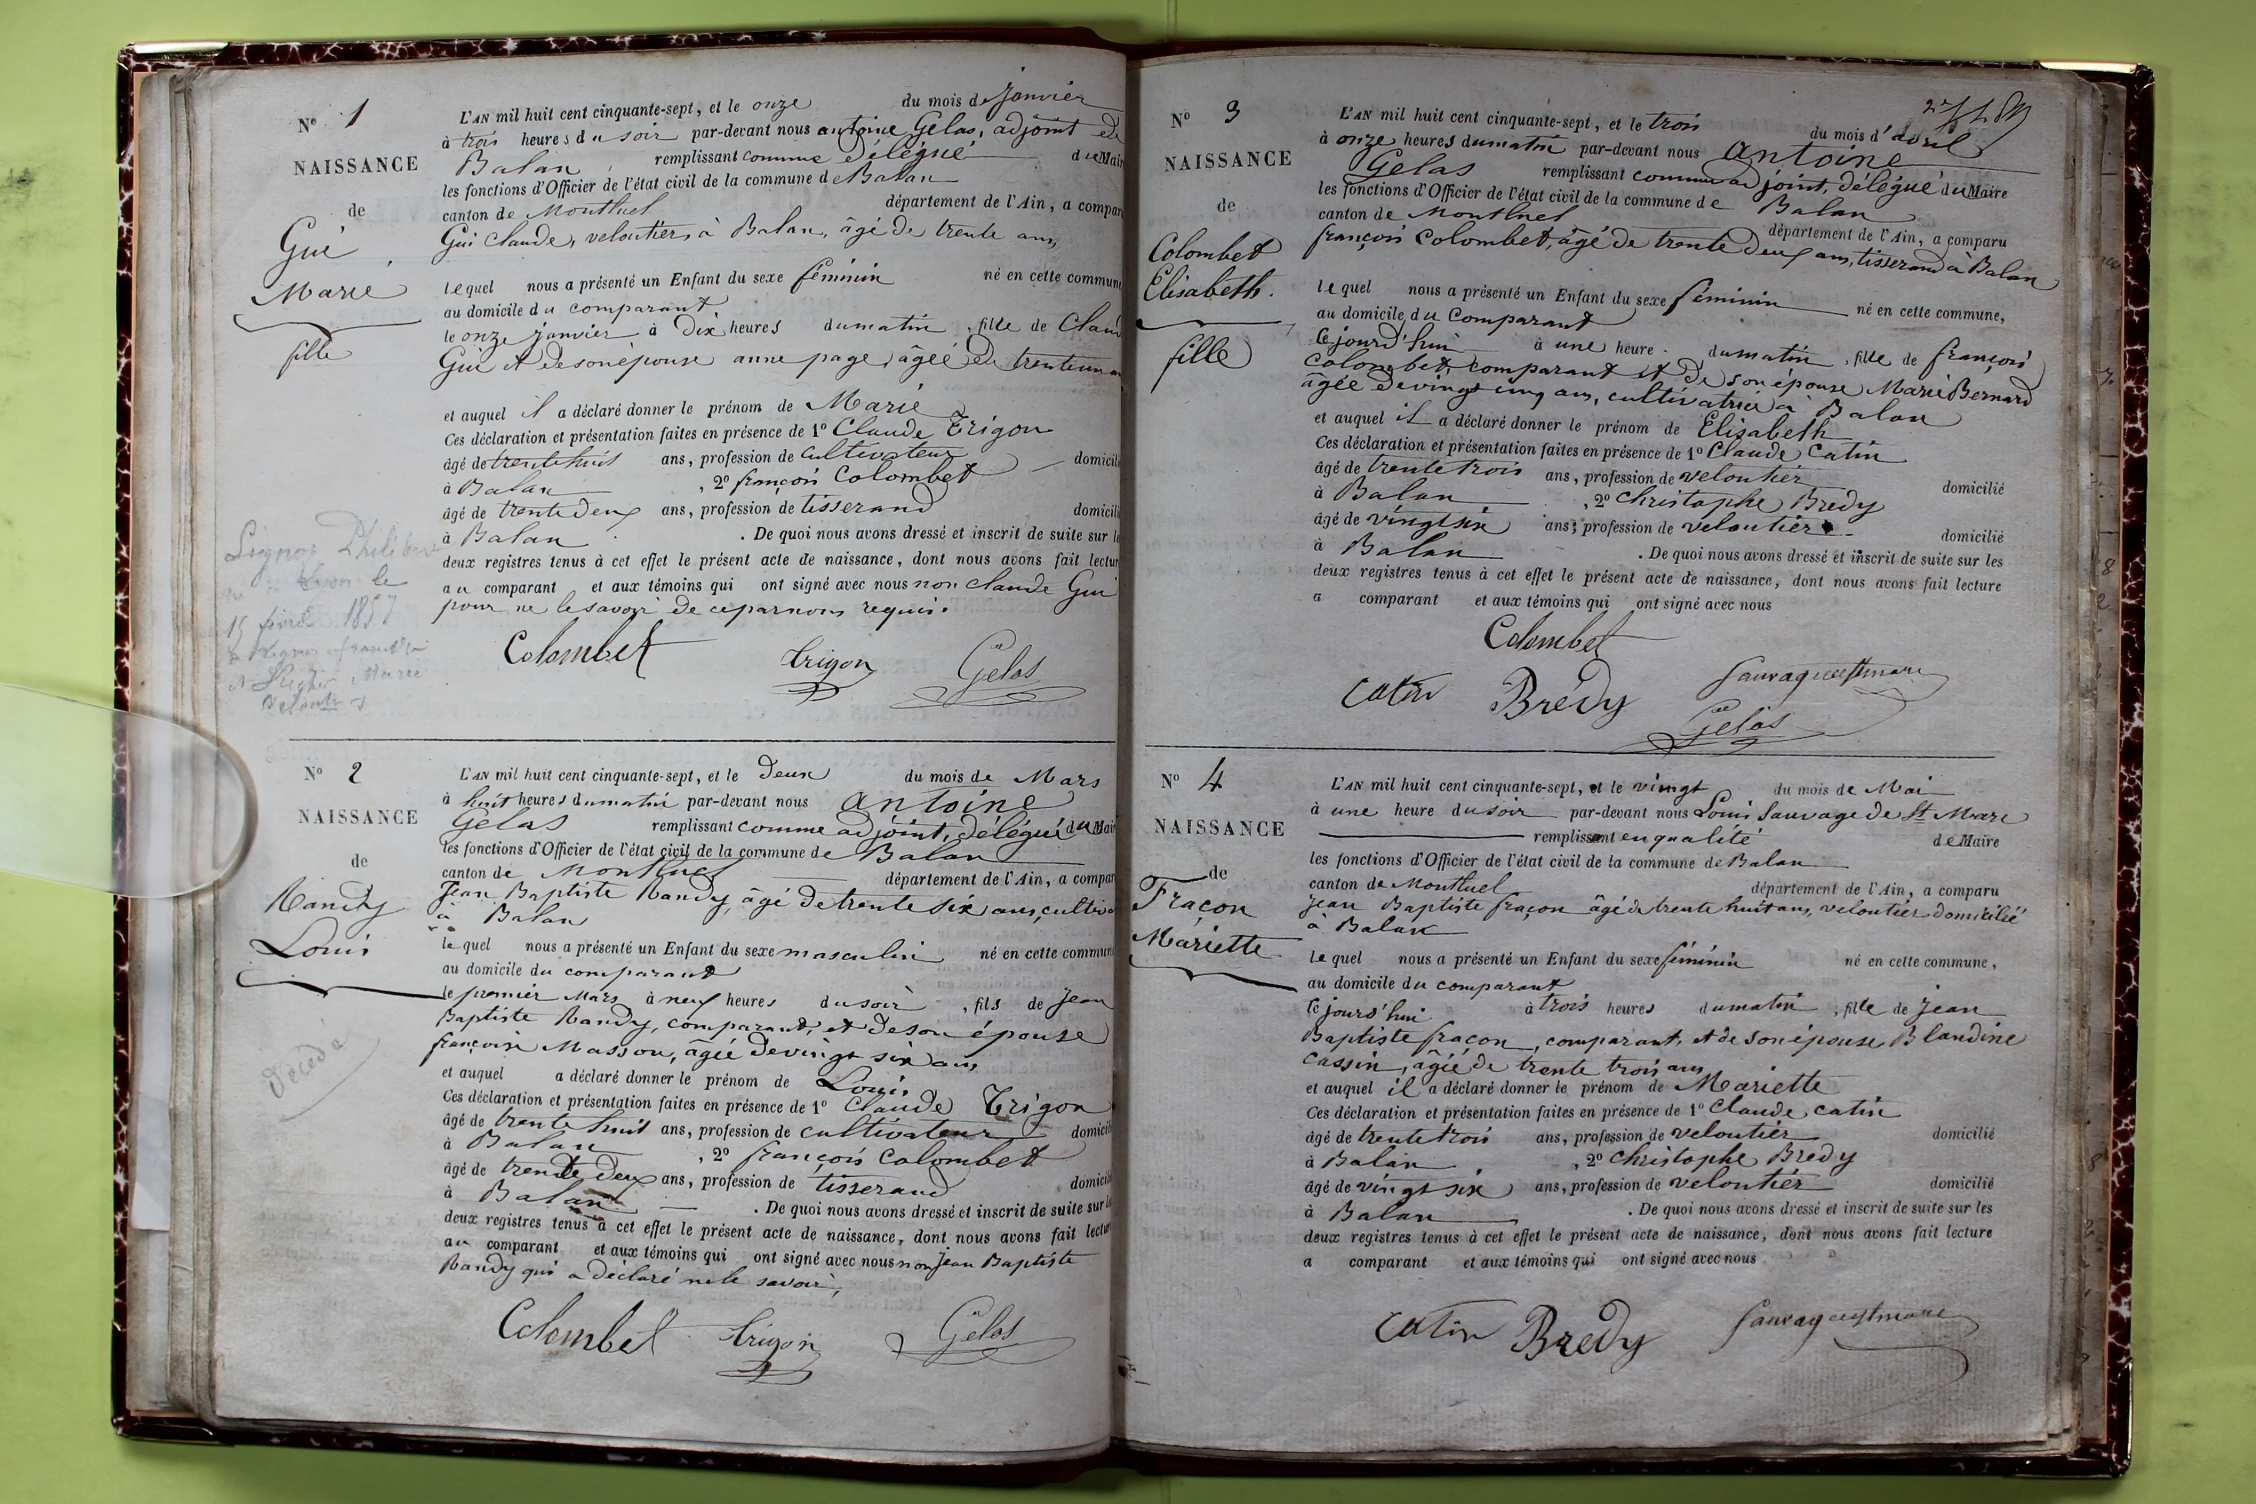 N° 1
NAISSANCE
de
Gui
Marie
fille
L'AN mil huit cent cinquante-sept, et le onze du mois de janvier
à trois heures du soir par-devant nous antoine Gelas, adjoint de
Balan, remplissant comme délégué du Mair
les fonctions d'Officier de l'état civil de la commune de Balan
canton de Montluel département de l'Ain, a compar
Gui claude, veloutier, à Balan, âgé de trente ans,
lequel nous a présenté un Enfant du sexe féminin né en cette commune
au domicile du comparant
le onze janvier à dix heures du matin, fille de Claud
Gui et de son épouse anne page, âgée de trente un an
et auquel il a déclaré donner le prénom de Marie
Ces déclaration et présentation faites en présence de 1° Claude Trigon
âgé de trente huit ans, profession de cultivateur domicili
à Balan, 2° françois Colombet
âgé de trente deux ans, profession de tisserand domicili
à Balan. De quoi nous avons dressé et inscrit de suite sur le
deux registres tenus à cet effet le présent acte de naissance, dont nous avons fait lectur
au comparant et aux témoins qui ont signé avec nous non claude Gui
pour ne le savoir de ce par nous requis.
Colombet Trigon Gelas
Philibert
Lyon le
15 1857
Marie
N° 2
NAISSANCE
de
Randy
Louis
décédé
L'AN mil huit cent cinquante-sept, et le deux du mois de Mars
à huit heures du matin par-devant nous antoine
Gelas remplissant comme adjoint, délégué du Mair
les fonctions d'Officier de l'état civil de la commune de Balan
canton de Montluel département de l'Ain, a compar
Jean Baptiste Randy, âgé de trente six ans, cultiva
à Balan
lequel nous a présenté un Enfant du sexe masculin né en cette commune
au domicile du comparant
le premier Mars à neuf heures du soir, fils de Jean
Baptiste Randy, comparant, et de son épouse
françoise Masson, âgée de vingt six ans
et auquel a déclaré donner le prénom de Louis
Ces déclaration et présentation faites en présence de 1° Claude Trigon
âgé de trente huit ans, profession de cultivateur domicili
à Balan, 2° françois Colombet
âgé de trente deux ans, profession de tisserand domicili
à Balan. De quoi nous avons dressé et inscrit de suite sur le
deux registres tenus à cet effet le présent acte de naissance, dont nous avons fait lectur
au comparant et aux témoins qui ont signé avec nous non Jean Baptiste
Randy qui a déclaré ne le savoir,
Colombet Trigon Gelas
N° 3
NAISSANCE
de
Colombet
Elisabeth.
fille
L'AN mil huit cent cinquante-sept, et le trois du mois d'avril
à onze heures du matin par-devant nous antoine
Gelas remplissant comme adjoint, délégué du Maire
les fonctions d'Officier de l'état civil de la commune de Balan
canton de Montluel département de l'Ain, a comparu
françois Colombet, âgé de trente deux ans, tisserand à Balan
lequel nous a présenté un Enfant du sexe féminin né en cette commune,
au domicile du Comparant
ce jourd'hui à une heure du matin, fille de françois
Colombet, comparant et de son épouse Marie Bernard
âgée de vingt cinq ans, cultivatrice à Balan
et auquel il a déclaré donner le prénom de Elisabeth
Ces déclaration et présentation faites en présence de 1° Claude Catin
âgé de trente trois ans, profession de veloutier domicilié
à Balan, 2° Christophe Bredy
âgé de vingt six ans, profession de veloutier domicilié
à Balan. De quoi nous avons dressé et inscrit de suite sur les
deux registres tenus à cet effet le présent acte de naissance, dont nous avons fait lecture
a comparant et aux témoins qui ont signé avec nous
Colombet
Catin Brédy Sauvage de St mare
Gelas
N° 4
NAISSANCE
de
Fraçon
Mariette
L'AN mil huit cent cinquante-sept, et le vingt du mois de Mai
à une heure du soir par-devant nous Louis Sauvage de St Mare
remplissant en qualité de Maire
les fonctions d'Officier de l'état civil de la commune de Balan
canton de Montluel département de l'Ain, a comparu
Jean Baptiste fraçon âgé de trente huit ans, veloutier domicilié
à Balan
lequel nous a présenté un Enfant du sexe féminin né en cette commune,
au domicile du comparant
ce jourd'hui à trois heures du matin, fille de Jean
Baptiste fraçon, comparant, et de son épouse Blandine
Cassin, âgée de trente trois ans
et auquel il a déclaré donner le prénom de Mariette
Ces déclaration et présentation faites en présence de 1° Claude Catin
âgé de trente trois ans, profession de veloutier domicilié
à Balan, 2° Christophe Bredy
âgé de vingt six ans, profession de veloutier domicilié
à Balan. De quoi nous avons dressé et inscrit de suite sur les
deux registres tenus à cet effet le présent acte de naissance, dont nous avons fait lecture
a comparant et aux témoins qui ont signé avec nous
Catin Bredy Sauvage de St mare